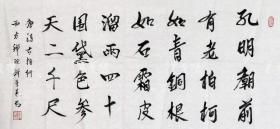 孔明廟前
有老柏柯
如青銅根
如石霜皮
溜雨四十
圍黛色參
天二千尺
唐詩古柏行